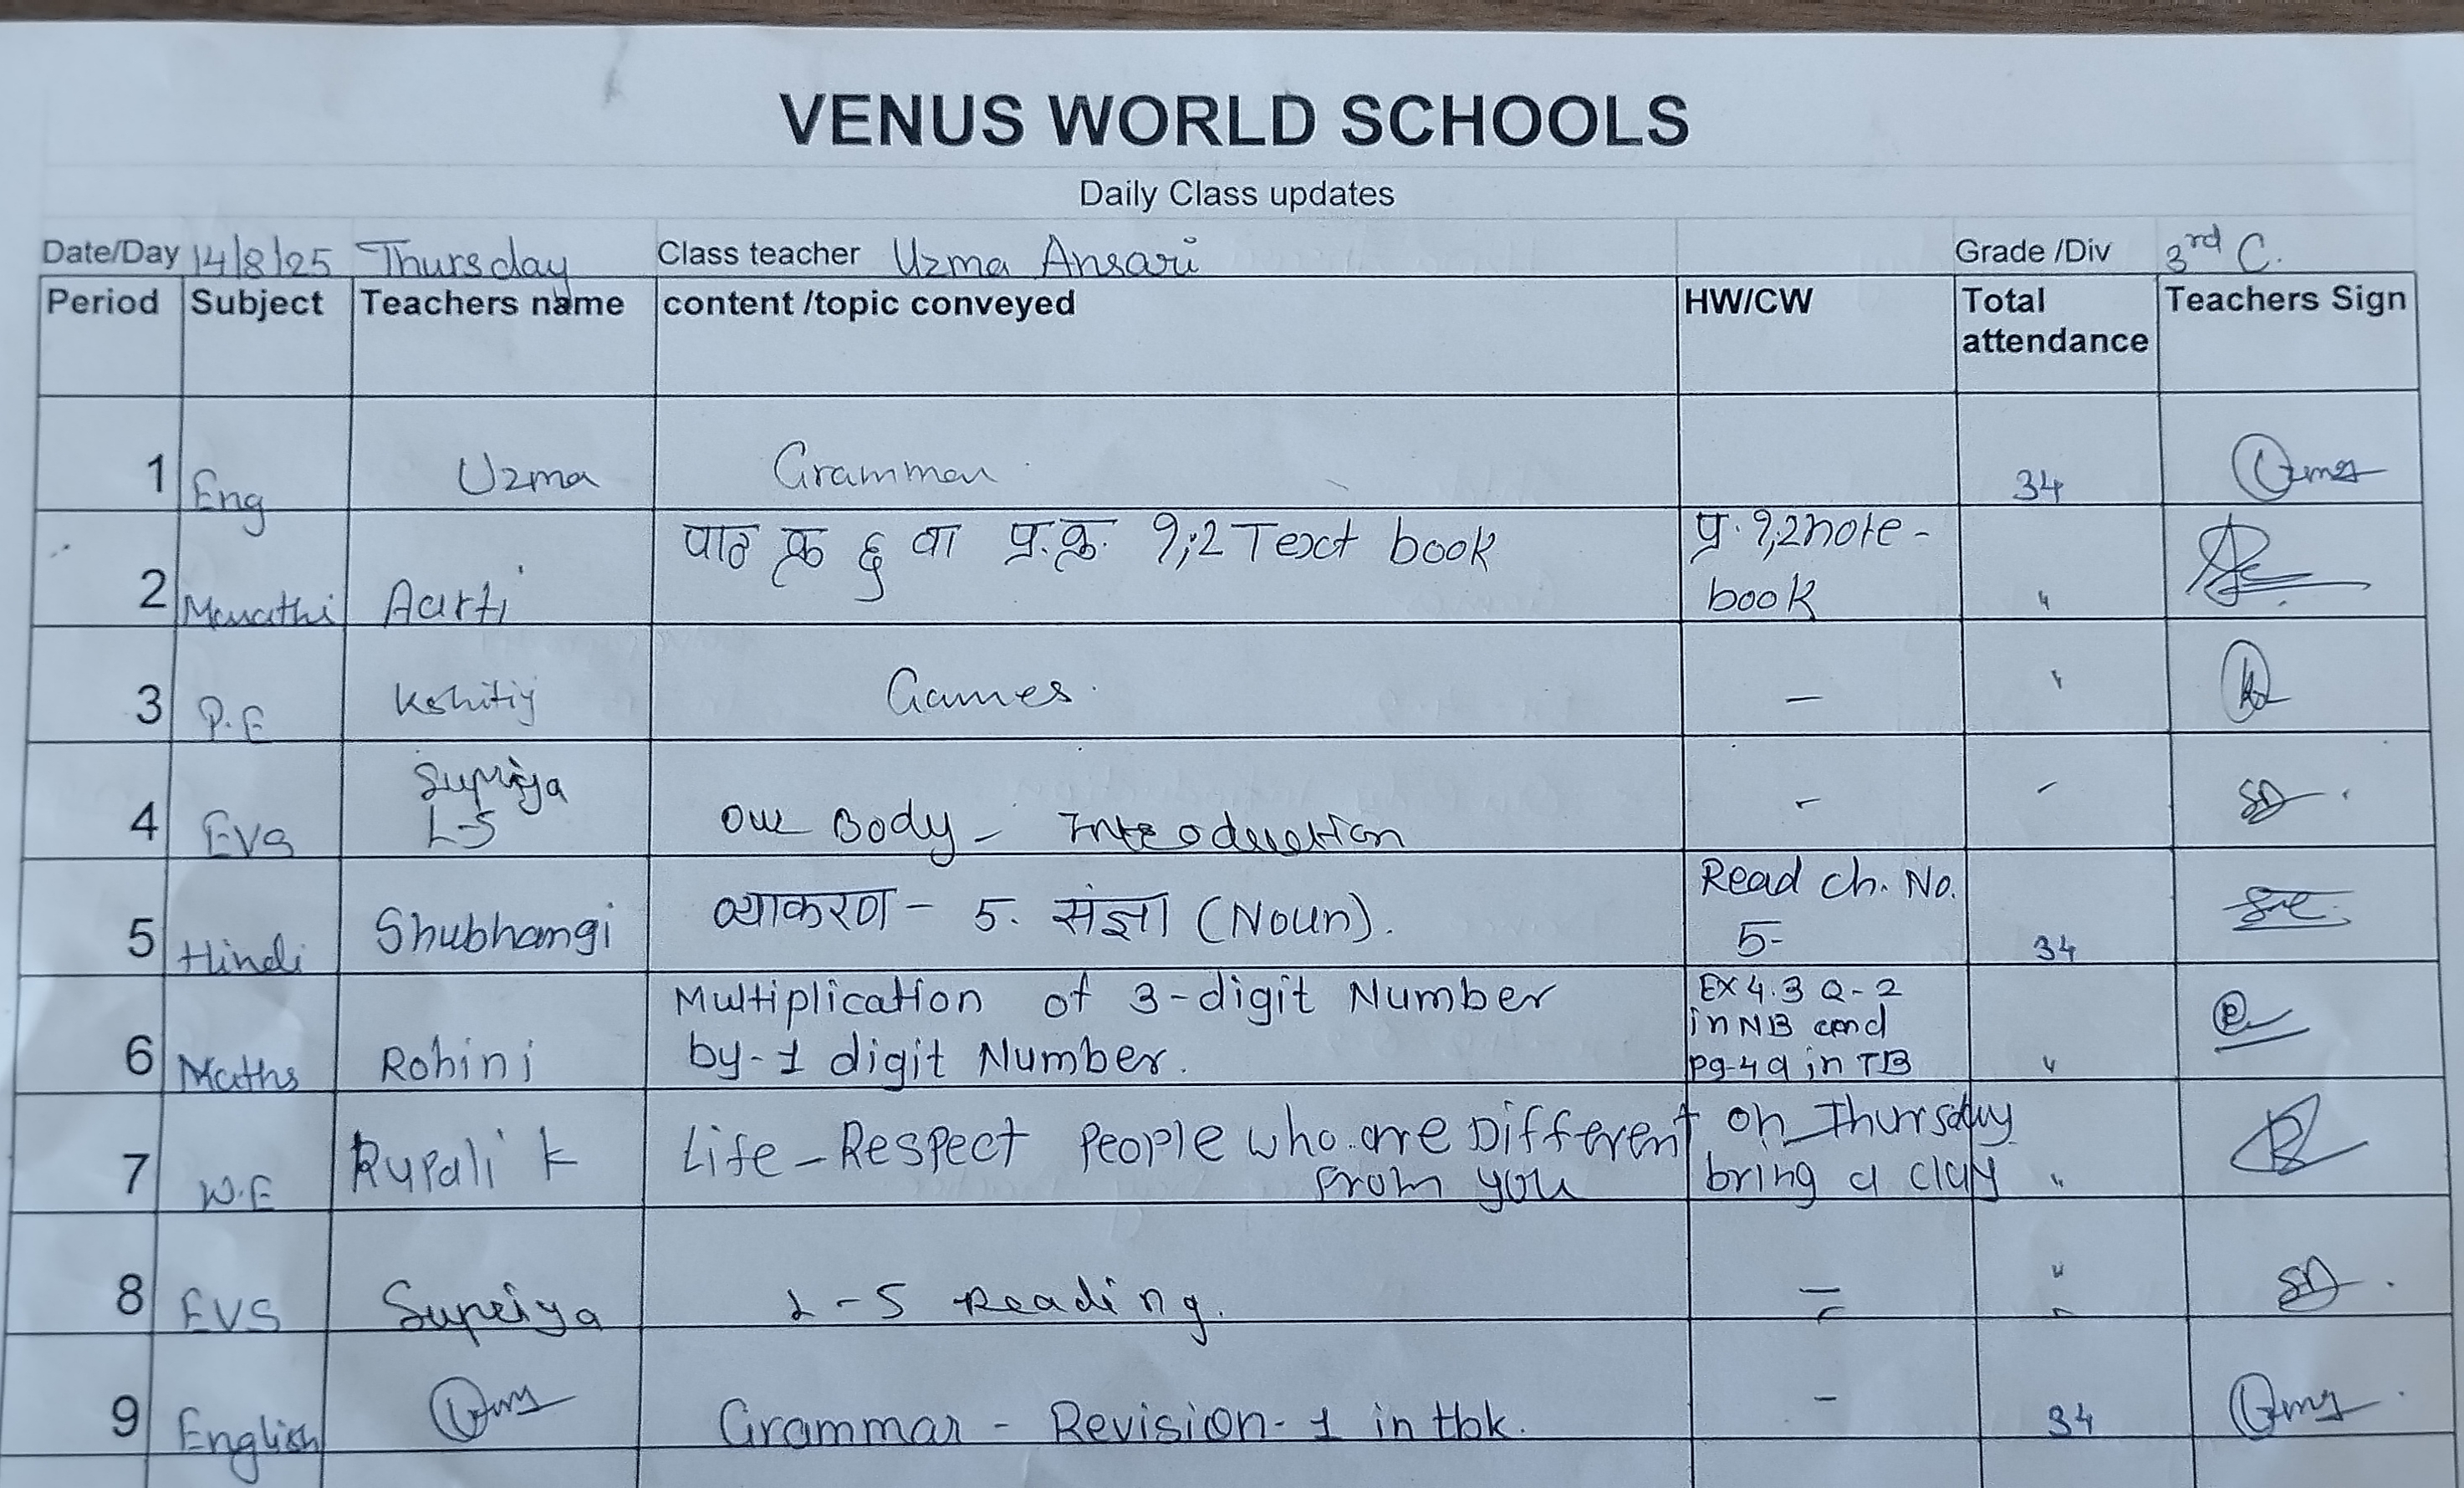 VENUS WORLD SCHOOLS
Daily Class updates
Date/Day 14/8/25 Thursday Class teacher Uzma Ansari Grade /Div 3rd C.
Period Subject Teachers name content /topic conveyed HW/CW Total attendance Teachers Sign
1 Eng Uzma Grammar 34
2 Marathi Aarti पाठ क्र ६ वा प्र.क्र. १,२ Text book प्र. १,२ note-
book "
3 P.E Kshitij Games. — "
4 EVS Supriya
L-5 Our Body - Introduction -
5 Hindi Shubhangi व्याकरण - 5. संज्ञा (Noun). Read ch. No.
5- 34
6 Maths Rohini Multiplication of 3-digit Number
by-1 digit Number. EX 4.3 Q-2
in NB and
pg-49 in TB "
7 W.E Rupali K Life - Respect People who are Different
from you on Thursday
bring a clay "
8 EVS Supriya L-5 Reading. = "
9 English Grammar - Revision-1 in tbk. - 34